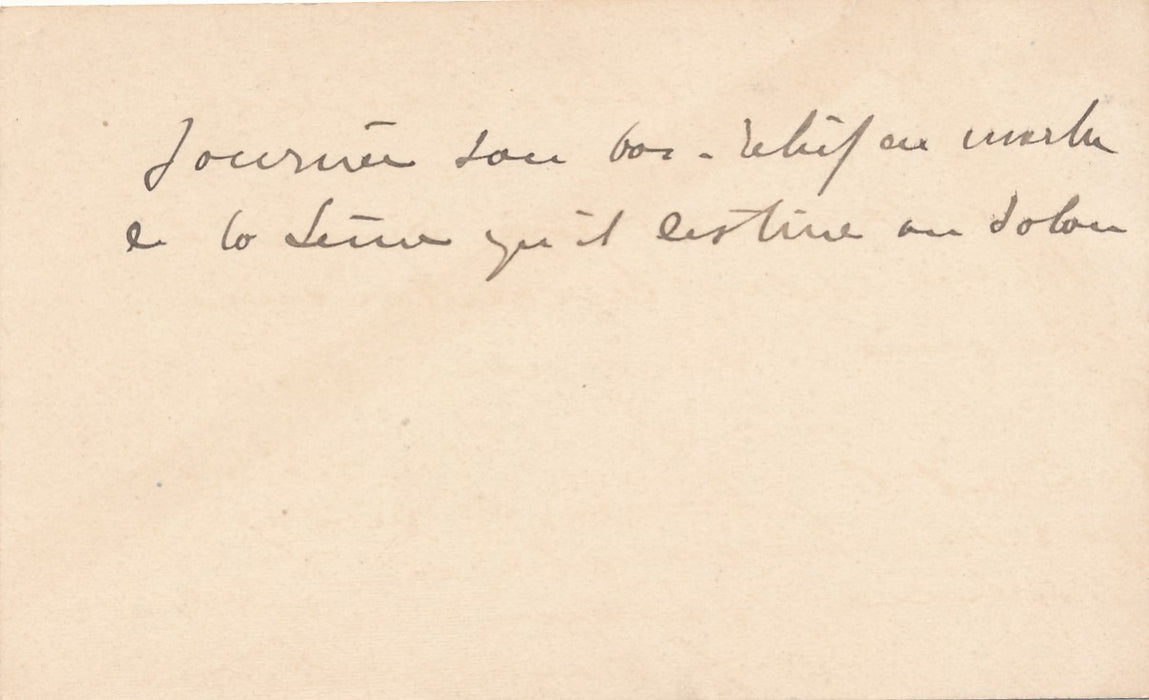 journée son bas-relief en marbre
de la Seine qu'il destine au Salon